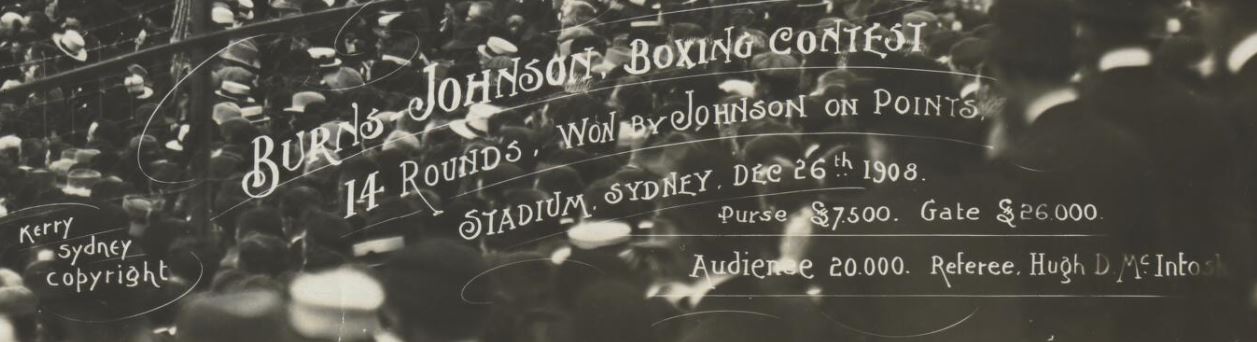 BURNS-JOHNSON, BOXING CONTEST
14 ROUNDS, WON BY JOHNSON ON POINTS,
STADIUM, SYDNEY, DEC 26th 1908.
Purse £7.500. Gate £26.000.
Audience 20.000. Referee. Hugh D. McIntosh
Kerry
Sydney
copyright